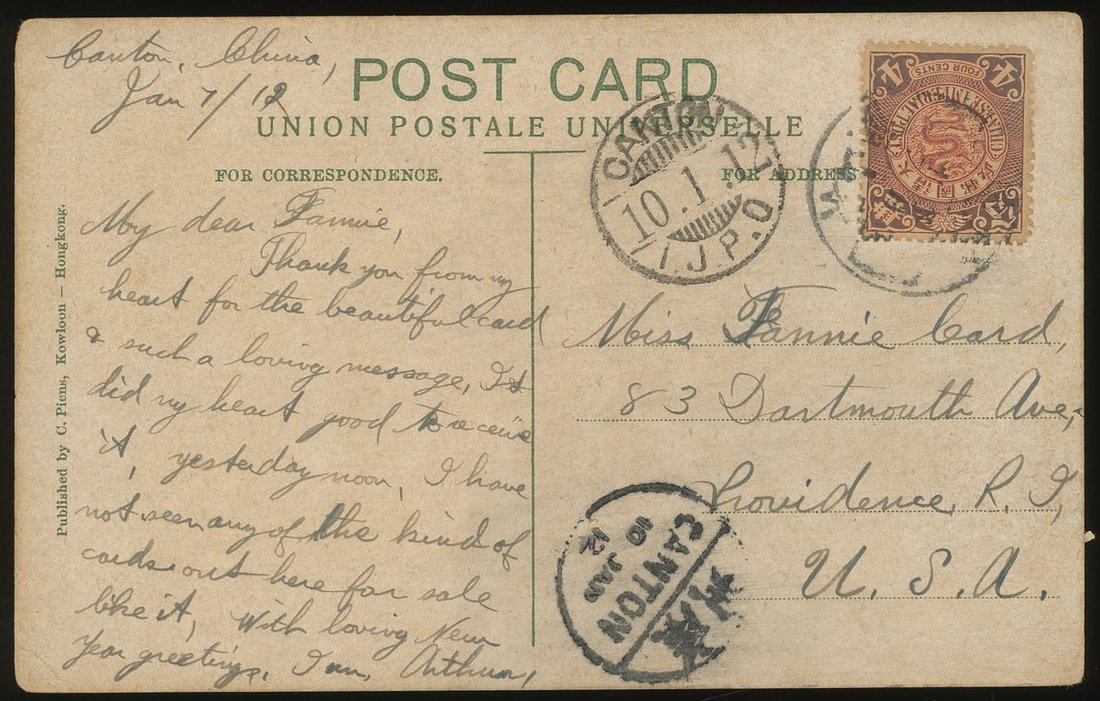 Canton, China,
Jan 7/12
POST CARD
UNION POSTALE UNIVERSELLE
FOR CORRESPONDENCE.
FOR ADDRESS
Published by C. Piens, Kowloon — Hongkong.
My dear Fannie,
Thank you from my
heart for the beautiful card
& such a loving message, It
did my heart good to receive
it, yesterday noon, I have
not seen any of the kind of
cards out here for sale
like it, With loving New
Year greetings, I am, Arthur,
CANTON
10.1.12
I.J.P.O
CHINESE IMPERIAL POST
FOUR CENTS
4 4
大清國郵政
Miss Fannie Card,
83 Dartmouth Ave,
Providence, R. I,
U. S. A.
CANTON
10 JAN 12